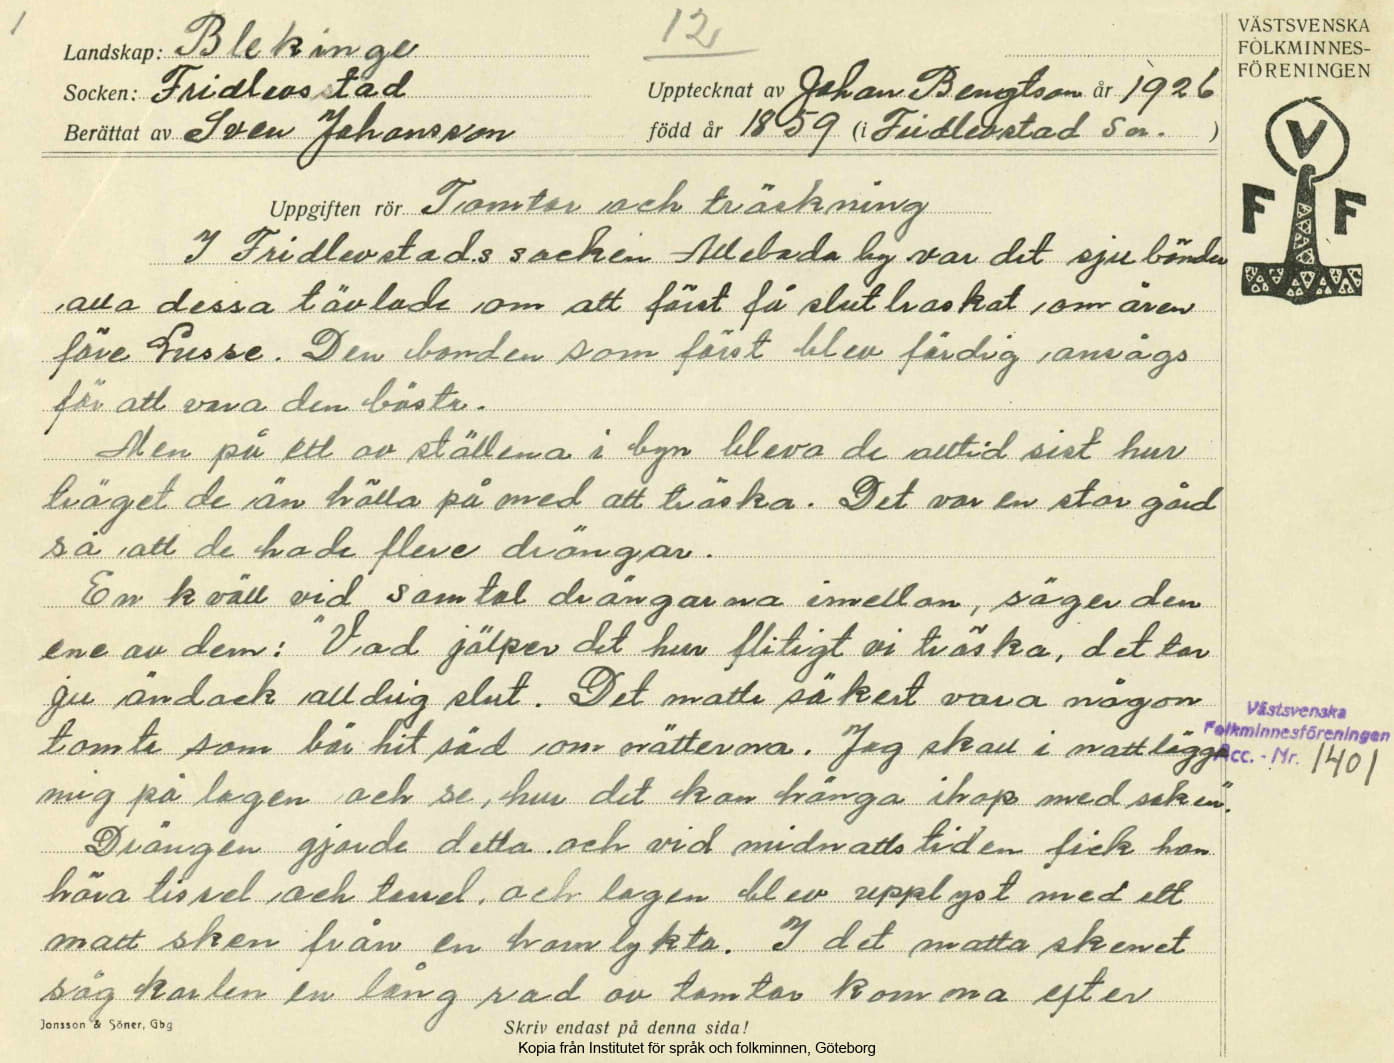 1
12
Landskap: Blekinge
Socken: Fridlevsstad
Upptecknat av Johan Bengtson år 1926
Berättat av Sven Johansson
född år 1859 (i Fridlevstad Sn. )
VÄSTSVENSKA
FOLKMINNES-
FÖRENINGEN
V
F F
Uppgiften rör Tomtar och träskning
I Fridlevstads socken Alleboda by var det sju bönder
alla dessa tävlade om att först få slut traskat om åren
före Lusse. Den bonden som först blev färdig ansågs
för att vara den bäste.
Men på ett av ställena i byn bleva de alltid sist hur
träget de än hålla på med att träska. Det var en stor gård
så att de hade flere drängar.
En kväll vid samtal drängarna imellan, säger den
ene av dem: "Vad jälper det hur flitigt vi träska, det tar
ju ändock alldrig slut. Det matte säkert vara någon
tomte som bär hit säd om nätterna. Jag skall i natt lägga
mig på logen och se, hur det kan hänga ihop med saken".
Drängen gjorde detta och vid midnattstiden fick han
höra tissel och tassel, och logen blev upplyst med ett
matt sken från en hornlykta. I det matta skenet
såg karlen en lång rad av tomtar komma efter
Västsvenska
Folkminnesföreningen
Acc. - Nr. 1401
Jonsson & Söner, Gbg
Skriv endast på denna sida!
Kopia från Institutet för språk och folkminnen, Göteborg